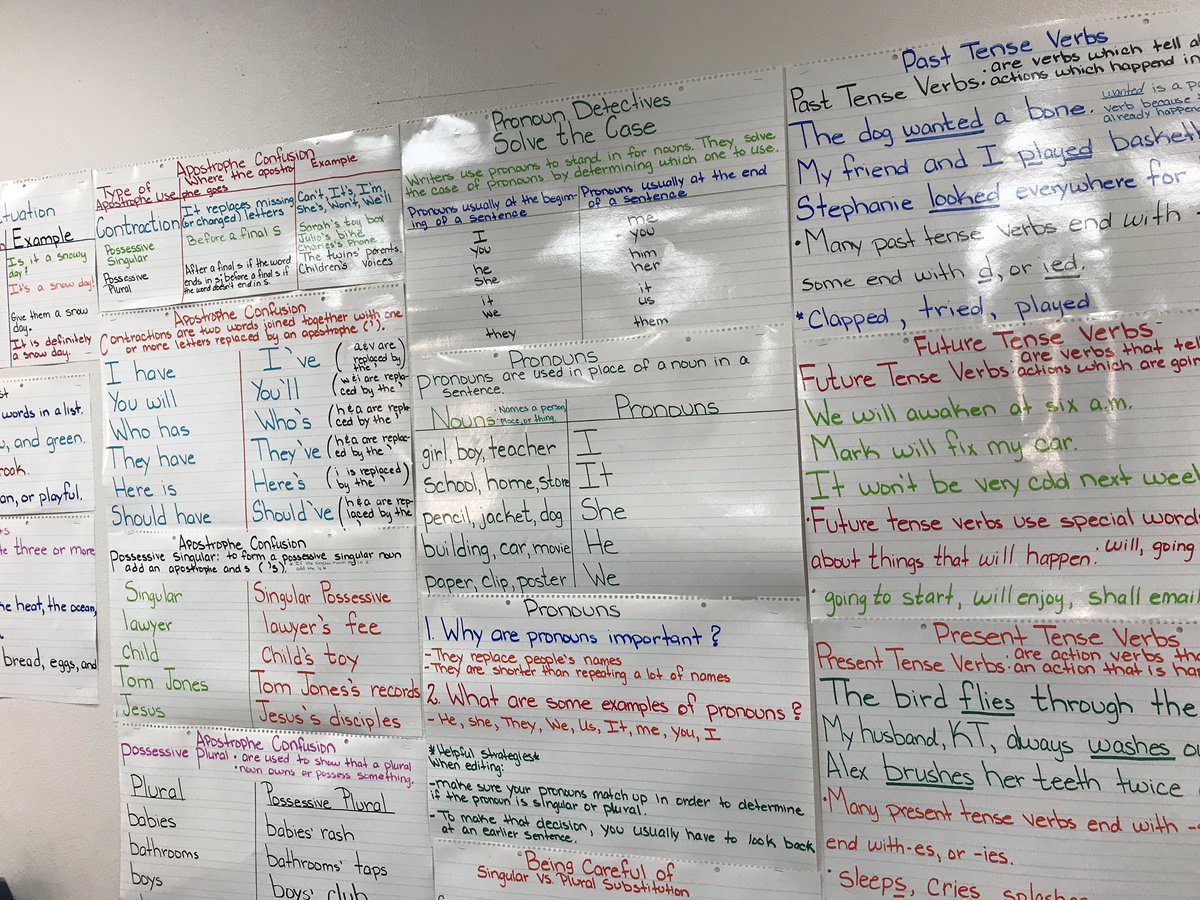 tuation
Example
Is it a snowy
day?
It's a snow day!
Give them a snow
day.
It is definitely
a snow day.
words in a list.
and green.
an, or playful.
three or more
he heat, the ocean,
bread, eggs, and
Apostrophe Confusion
Type of
Apostrophe use
Where the apostro
phe goes
Example
Contraction
It replaces missing
(or changed) letters
Can't, It's, I'm,
She's, Won't, We'll
Possessive
Singular
Before a final s
Sarah's toy box
Julio's bike
Charles's Phone
Possessive
Plural
After a final s if the word
ends in s; before a final s if
the word doesn't end in s.
The twins' parents,
Children's voices
Apostrophe Confusion
Contractions are two words joined together with one
or more letters replaced by an apostrophe (').
I have I've (a&v are replaced by the '
You will You'll (w&i are replaced by the '
Who has Who's (h&a are replced by the '
They have They've (h&a are replaced by the '
Here is Here's (i is replaced by the ')
Should have Should've (h&a are replaced by the '
Apostrophe Confusion
Possessive Singular: to form a possessive singular noun
add an apostrophe and s ('s).
Singular Singular Possessive
lawyer lawyer's fee
child Child's toy
Tom Jones Tom Jones's records
Jesus Jesus's disciples
Apostrophe Confusion
Possessive Plural • are used to show that a plural
• noun owns or possess something.
Plural Possessive Plural
babies babies' rash
bathrooms bathrooms' taps
boys boys' club
Pronoun Detectives
Solve the Case
Writers use pronouns to stand in for nouns. They, solve
the case of pronouns by determining which one to use.
Pronouns usually at the begin-
ing of a sentence
Pronouns usually at the end
of a sentence
I me
You you
he him
She her
it it
we us
they them
Pronouns
Pronouns are used in place of a noun in a
Sentence.
Nouns • Names a person, place, or thing. Pronouns
girl, boy, teacher I
School, home, store It
pencil, jacket, dog She
building, car, movie He
paper, clip, poster We
Pronouns
1. Why are pronouns important?
- They replace people's names
- They are shorter than repeating a lot of names
2. What are some examples of pronouns?
- He, she, They, We, Us, It, me, you, I
*Helpful strategies*
When editing:
- make sure your pronouns match up in order to determine
if the pronoun is singular or plural.
- To make that decision, you usually have to look back
at an earlier sentence.
Being Careful of
Singular vs. Plural Substitution
Past Tense Verbs
Past Tense Verbs: are verbs which tell
actions which happend in
The dog wanted a bone.
wanted is a
verb because
already happen
My friend and I played basketb
Stephanie looked everywhere for
• Many past tense verbs end with
some end with d, or ied.
* Clapped, tried, played
Future Tense Verbs
Future Tense Verbs: are verbs that tell
actions which are going
We will awaken at six a.m.
Mark will fix my car.
It won't be very cold next week
• Future tense verbs use special words
about things that will happen. will, going
• going to start, will enjoy, shall email
Present Tense Verbs
Present Tense Verbs: are action verbs tha
an action that is hap
The bird flies through the
My husband, KT, always washes
Alex brushes her teeth twice
• Many present tense verbs end with -
end with -es, or -ies.
• sleeps, cries, splashe